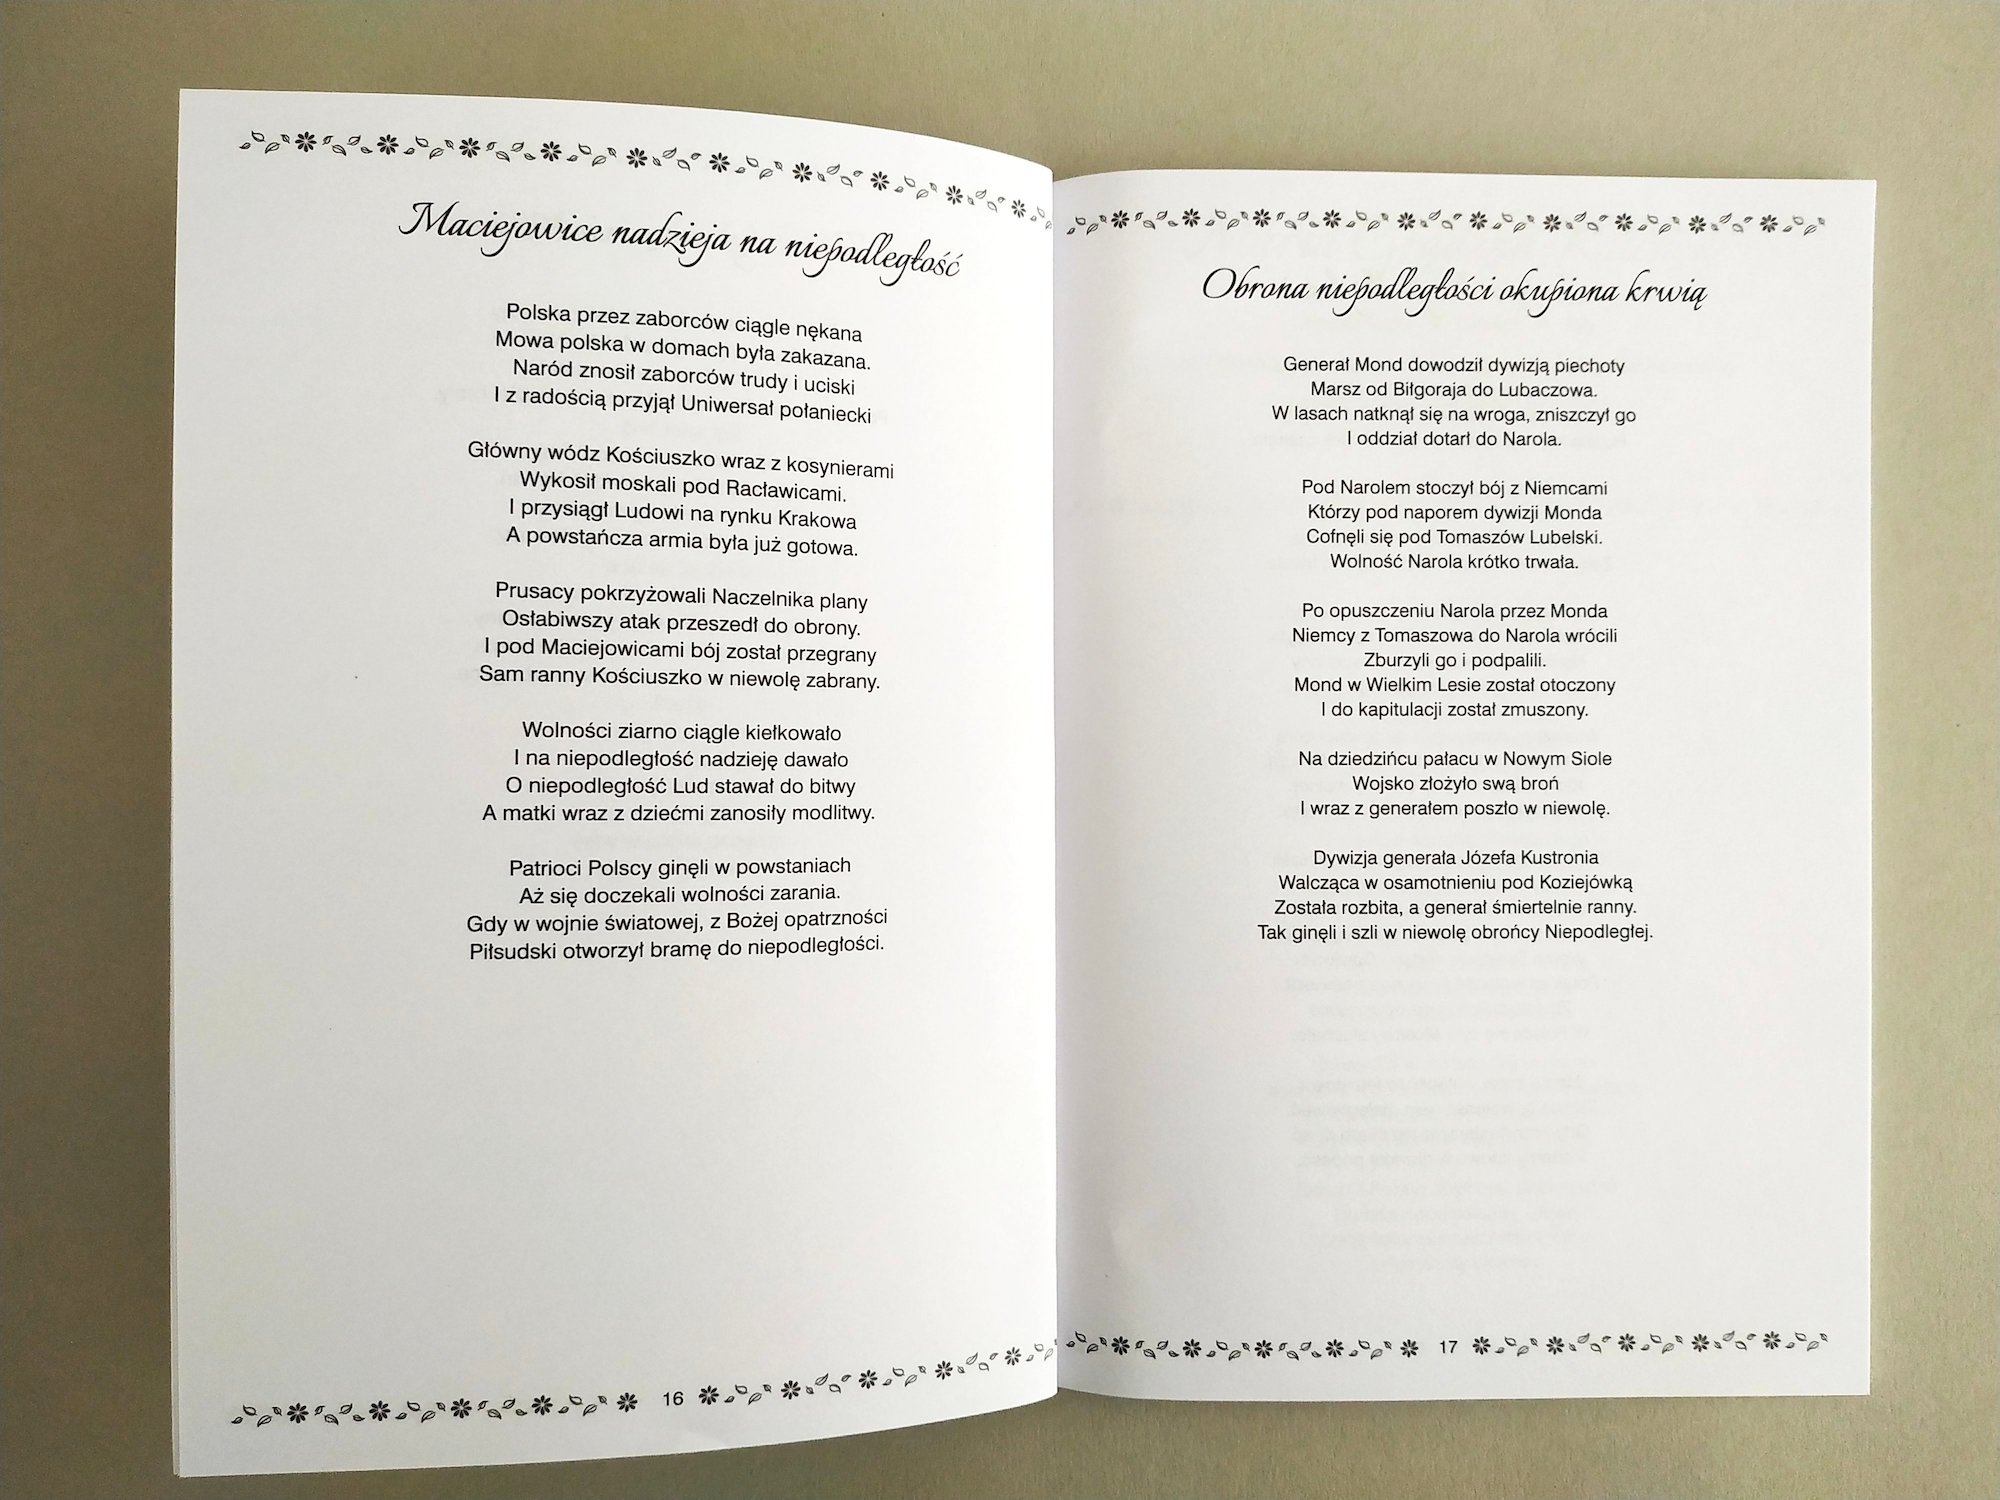 Maciejowice nadzieja na niepodległość
Polska przez zaborców ciągle nękana
Mowa polska w domach była zakazana.
Naród znosił zaborców trudy i uciski
I z radością przyjął Uniwersał połaniecki
Główny wódz Kościuszko wraz z kosynierami
Wykosił moskali pod Racławicami.
I przysiągł Ludowi na rynku Krakowa
A powstańcza armia była już gotowa.
Prusacy pokrzyżowali Naczelnika plany
Osłabiwszy atak przeszedł do obrony.
I pod Maciejowicami bój został przegrany
Sam ranny Kościuszko w niewolę zabrany.
Wolności ziarno ciągle kiełkowało
I na niepodległość nadzieję dawało
O niepodległość Lud stawał do bitwy
A matki wraz z dziećmi zanosiły modlitwy.
Patrioci Polscy ginęli w powstaniach
Aż się doczekali wolności zarania.
Gdy w wojnie światowej, z Bożej opatrzności
Piłsudski otworzył bramę do niepodległości.
16
Obrona niepodległości okupiona krwią
Generał Mond dowodził dywizją piechoty
Marsz od Biłgoraja do Lubaczowa.
W lasach natknął się na wroga, zniszczył go
I oddział dotarł do Narola.
Pod Narolem stoczył bój z Niemcami
Którzy pod naporem dywizji Monda
Cofnęli się pod Tomaszów Lubelski.
Wolność Narola krótko trwała.
Po opuszczeniu Narola przez Monda
Niemcy z Tomaszowa do Narola wrócili
Zburzyli go i podpalili.
Mond w Wielkim Lesie został otoczony
I do kapitulacji został zmuszony.
Na dziedzińcu pałacu w Nowym Siole
Wojsko złożyło swą broń
I wraz z generałem poszło w niewolę.
Dywizja generała Józefa Kustronia
Walcząca w osamotnieniu pod Koziejówką
Została rozbita, a generał śmiertelnie ranny.
Tak ginęli i szli w niewolę obrońcy Niepodległej.
17